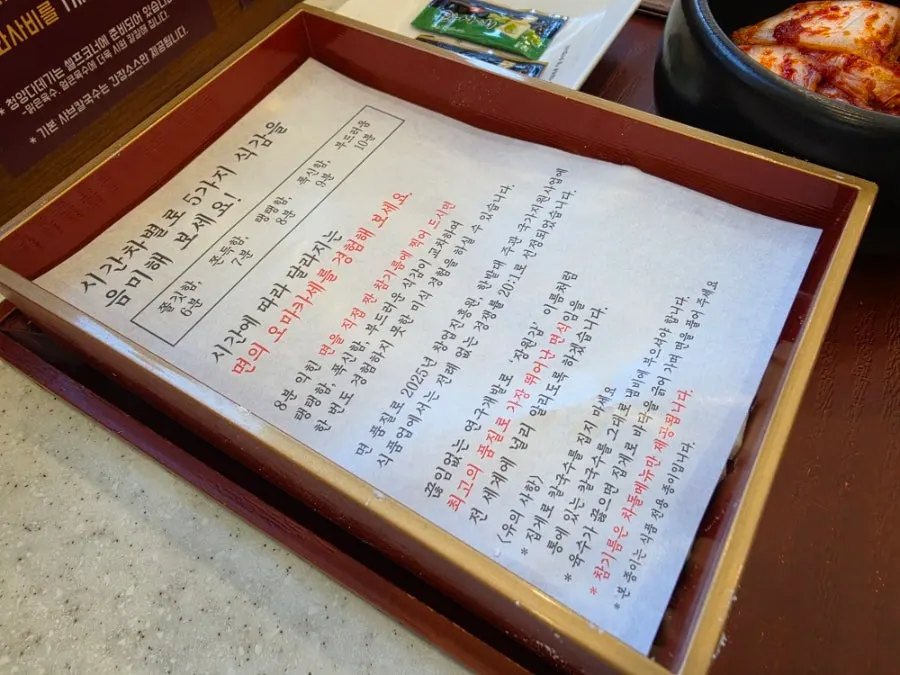 * 청양다대기는 셀프코너에 준비되어 있습니다.
* 기본 샤브칼국수는 간장소스만 제공됩니다.
시간차별로 5가지 식감을
음미해 보세요!
쫄깃함, 쫀득함, 탱탱함, 폭신함, 부드러움
6분 7분 8분 9분 10분
시간에 따라 달라지는
면의 오마카세를 경험해 보세요.
8분 익힌 면을 직접 짠 참기름에 찍어 드시면
탱탱함, 폭신함, 부드러운 식감이 교차하여
한 번도 경험하지 못한 미식 경험을 하실 수 있습니다.
면 품질로 2025년 창업진흥원, 한밭대 주관 국가지원사업에
식품업에서는 전례 없는 경쟁률 20:1로 선정되었습니다.
끊임없는 연구개발로 '장원갑' 이름처럼
최고의 품질로 가장 뛰어난 면식임을
전 세계에 널리 알리도록 하겠습니다.
(유의 사항)
* 집게로 칼국수를 집지 마세요
통에 있는 칼국수를 그대로 냄비에 부으셔야 합니다.
* 육수가 끓으면 집게로 바닥을 긁어 가며 면을 풀어 주세요
* 참기름은 차돌메뉴만 제공됩니다.
* 본 종이는 식품 전용 종이입니다.